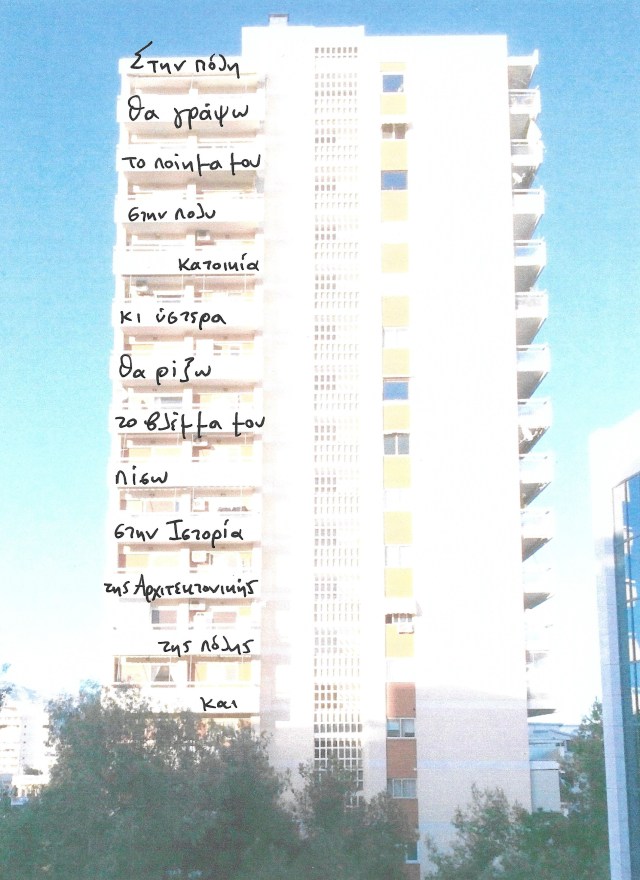 Στην πόλη
θα γράψω
το ποίημα μου
στην πολυ
κατοικία
κι ύστερα
θα ρίξω
το βλέμμα μου
πίσω
στην Ιστορία
της Αρχιτεκτονικής
της πόλης
και